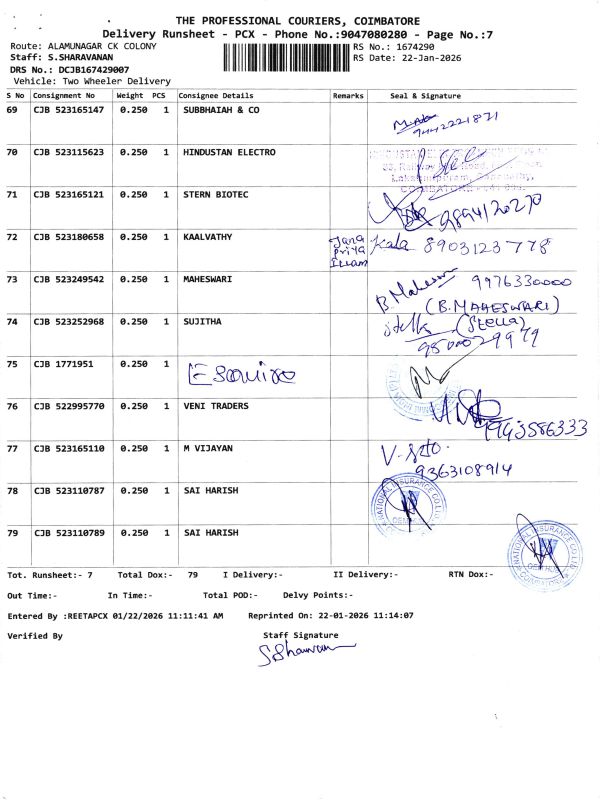 THE PROFESSIONAL COURIERS, COIMBATORE
Delivery Runsheet - PCX - Phone No.:9047080280 - Page No.:7
Route: ALAMUNAGAR CK COLONY RS No.: 1674290
Staff: S.SHARAVANAN RS Date: 22-Jan-2026
DRS No.: DCJB167429007
Vehicle: Two Wheeler Delivery
S No Consignment No Weight PCS Consignee Details Remarks Seal & Signature
69 CJB 523165147 0.250 1 SUBBHAIAH & CO
9442221871
70 CJB 523115623 0.250 1 HINDUSTAN ELECTRO
71 CJB 523165121 0.250 1 STERN BIOTEC
9894120270
72 CJB 523180658 0.250 1 KAALVATHY Jana Priya Illam Kala 8903123778
73 CJB 523249542 0.250 1 MAHESWARI B. Maheswari 9976330000
(B.MAHESWARI)
74 CJB 523252968 0.250 1 SUJITHA Stella (Stella)
9500029979
75 CJB 1771951 0.250 1 Esquire
76 CJB 522995770 0.250 1 VENI TRADERS
9943586333
77 CJB 523165110 0.250 1 M VIJAYAN
9363108914
78 CJB 523110787 0.250 1 SAI HARISH
NATIONAL INSURANCE CO LTD
79 CJB 523110789 0.250 1 SAI HARISH
NATIONAL INSURANCE CO LTD
COIMBATORE
Tot. Runsheet:- 7 Total Dox:- 79 I Delivery:- II Delivery:- RTN Dox:-
Out Time:- In Time:- Total POD:- Delvy Points:-
Entered By :REETAPCX 01/22/2026 11:11:41 AM Reprinted On: 22-01-2026 11:14:07
Verified By Staff Signature